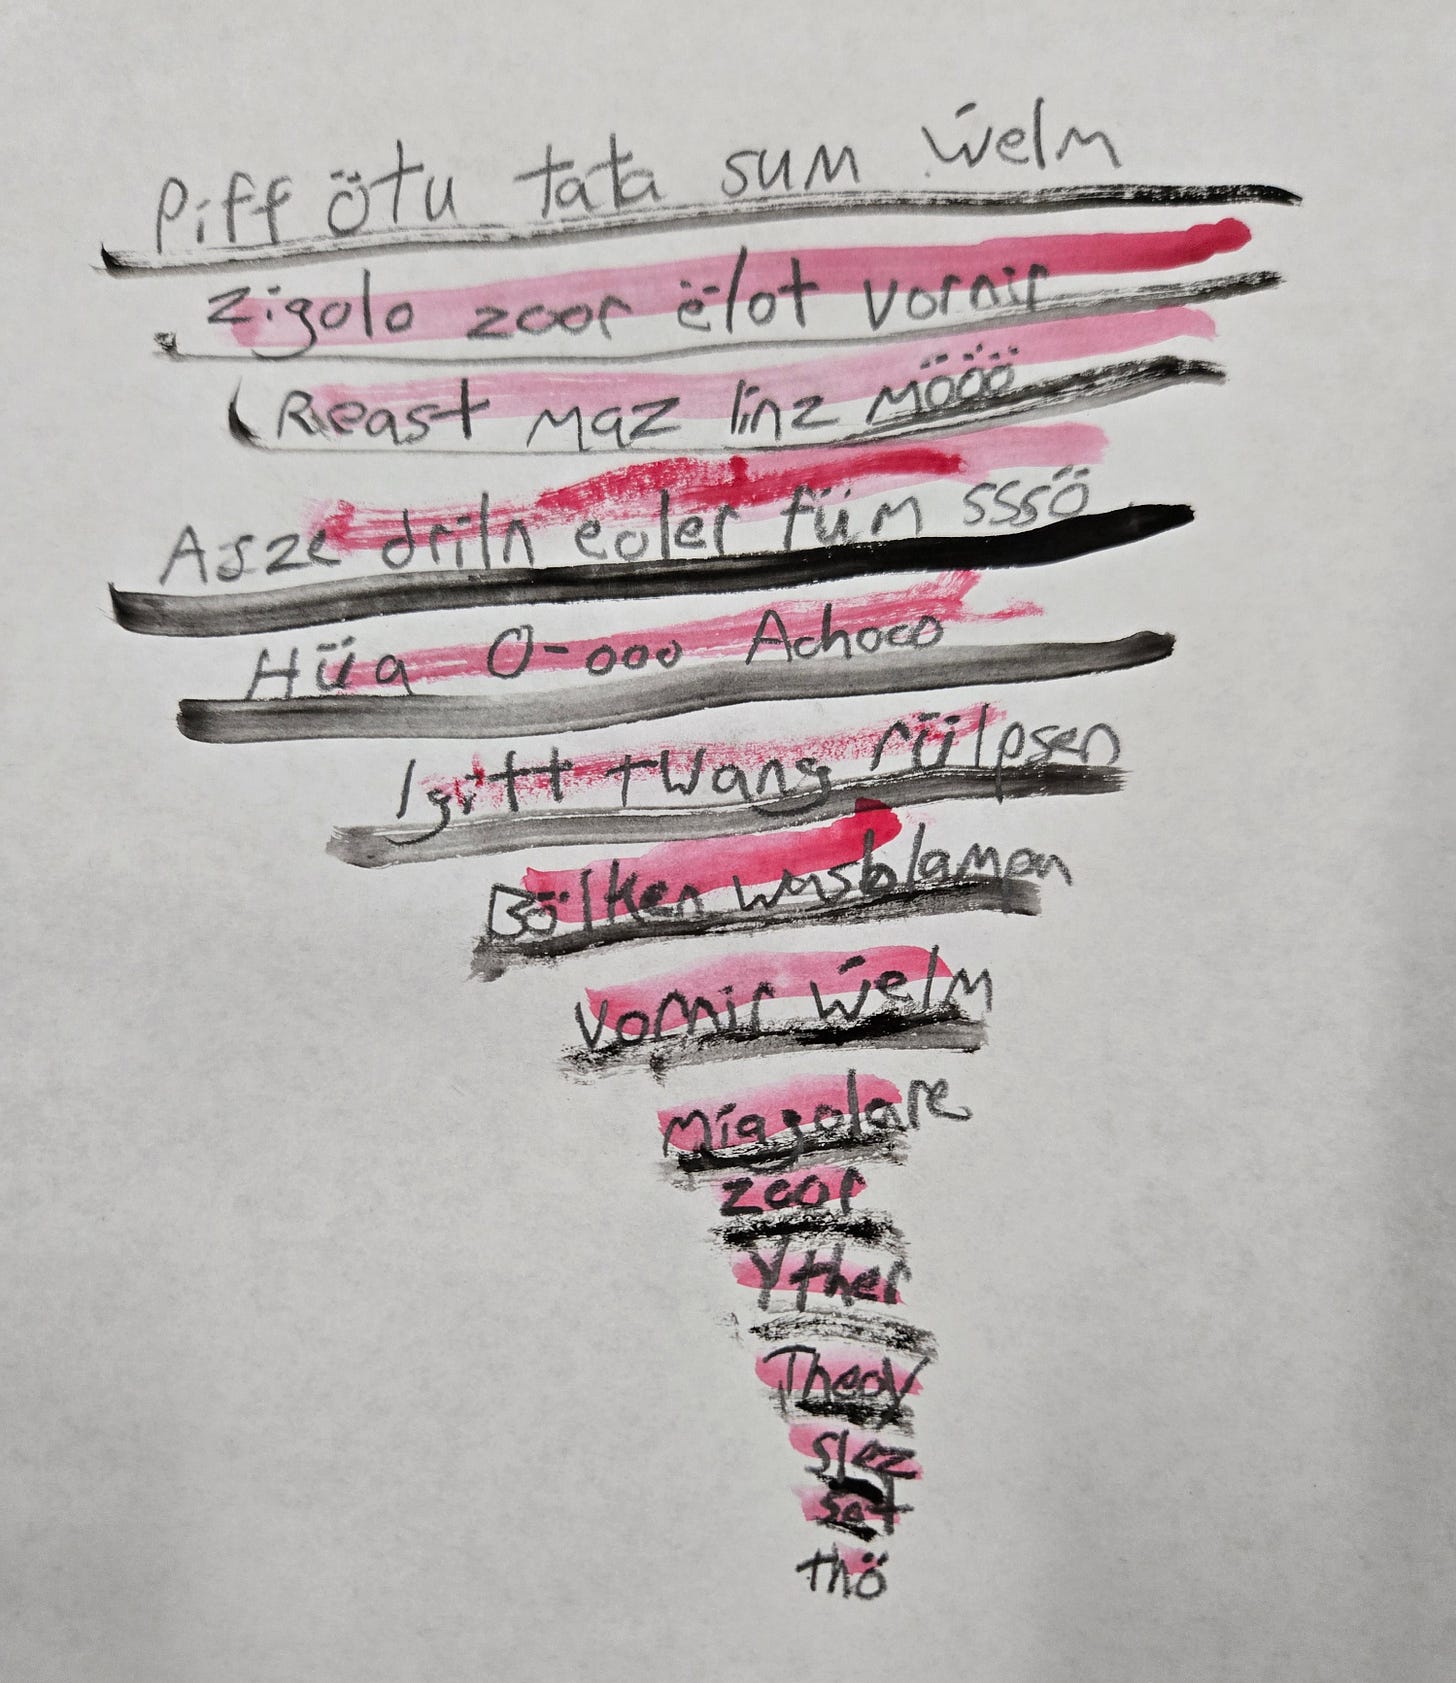 Piff ötu tata sum ẃelm
Zigolo zoor ëlot vornir
Reast maz linz mööö
Asze driln eoler füm sssö
Hüa O-ooo Achoco
Igritt twang rülpsen
Bölken wasblampen
Vornir ẃelm
Miggolare
zoor
Yther
Theoy
slaz
set
thö